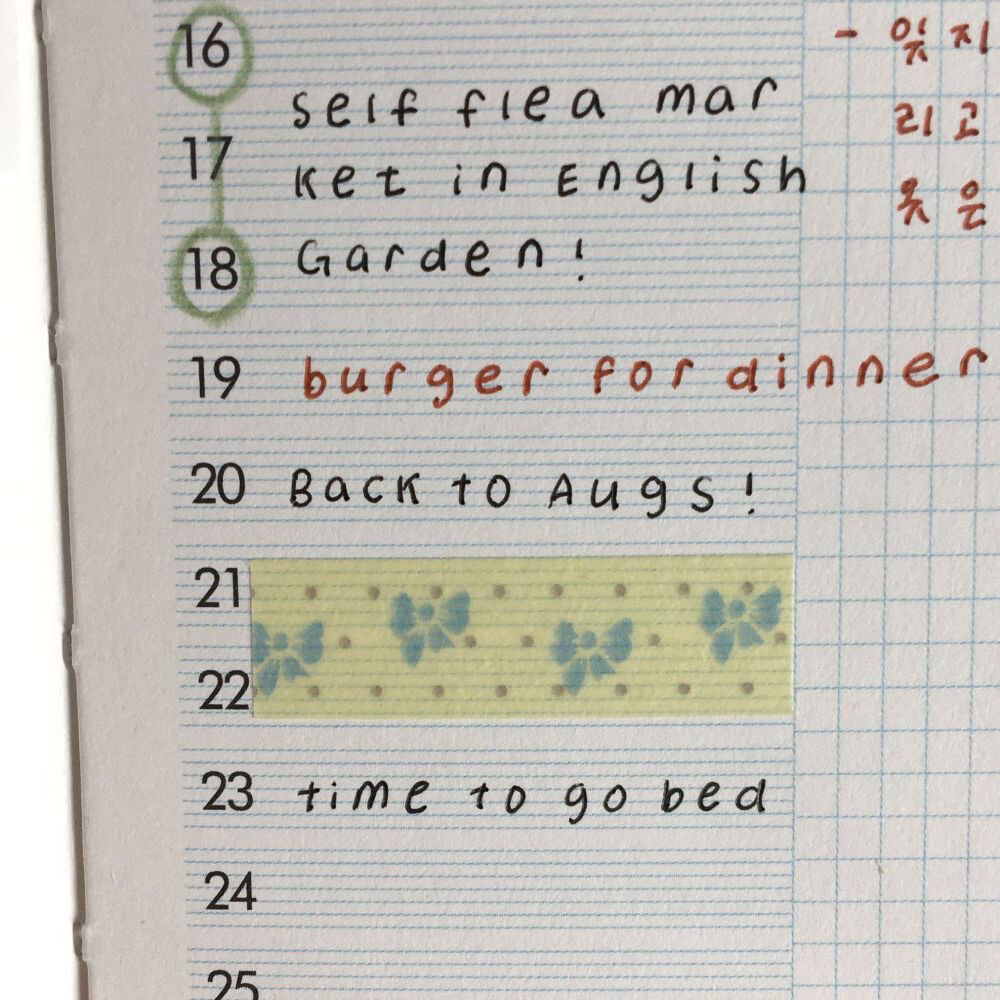 16
self flea mar
17
ket in English
18
Garden!
19 burger for dinner
20 Back to Augs!
21
22
23 time to go bed
24
25
- 잊지
리고
옷은